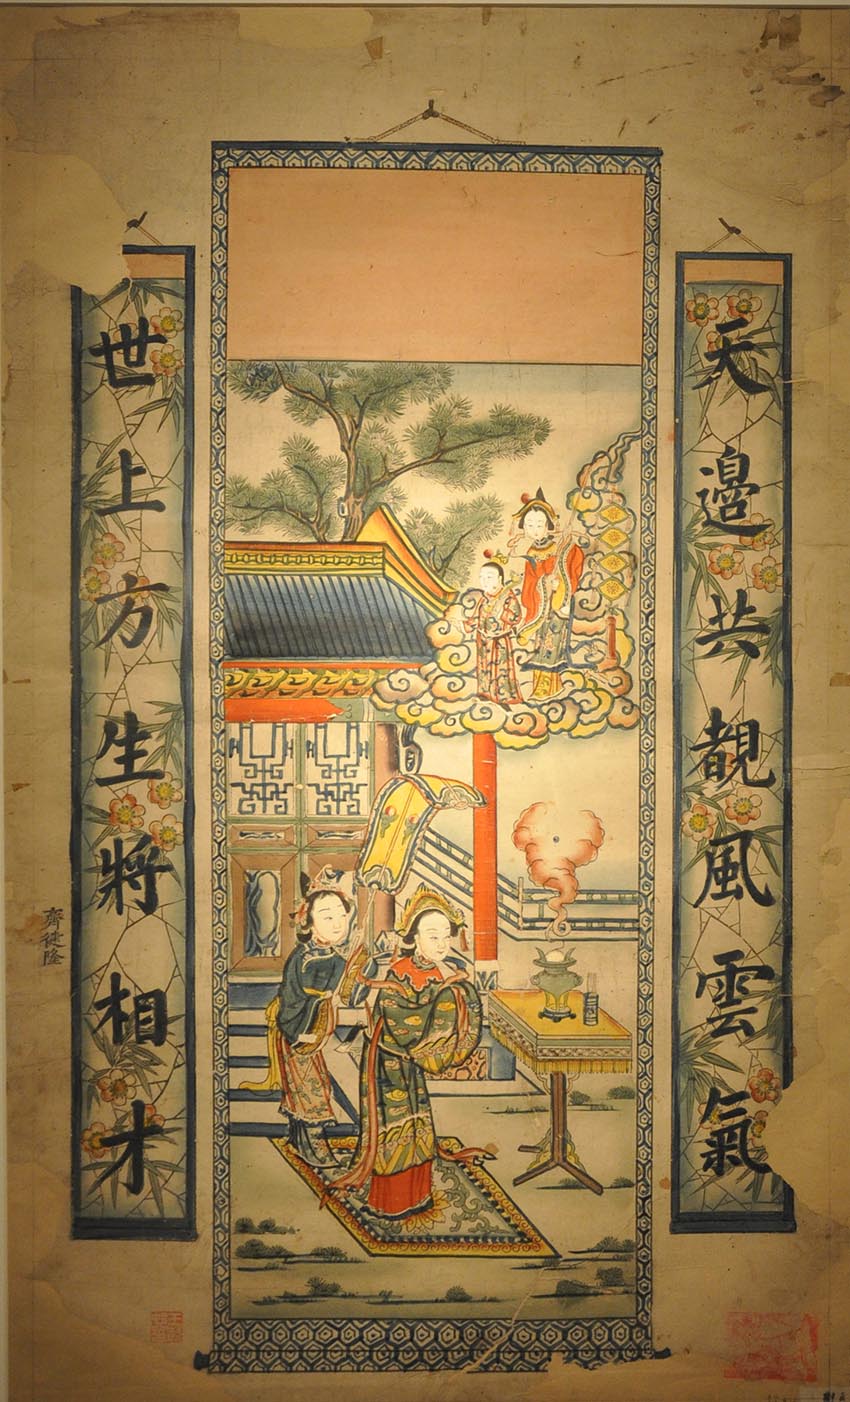 天邉共覩風雲氣
世上方生將相才
齊健隆